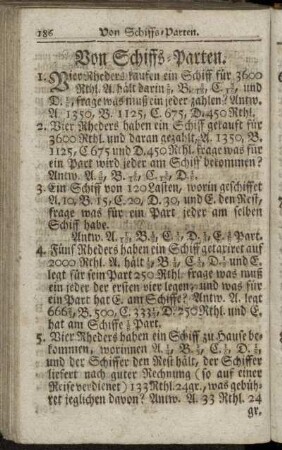 186 Von Schiffs-Parten.
Von Schiffs-Parten.
1. Vier Rheders kaufen ein Schiff für 3600
Rthl. A. hält darin B. C. und
D. frage was muß ein jeder zahlen? Antw.
A. 1350, B. 1125, C. 675, D. 450 Rthl.
2. Vier Rheders haben ein Schiff gekauft für
3600 Rthl. und daran gezahlt, A. 1350, B.
1125, C 675 und D. 450 Rthl. frage was für
ein Part wird jeder am Schiff bekommen?
Antw. A. B. C. D.
3. Ein Schiff von 120 Lasten, worin geschiffet
A, 10, B. 15, C. 20, D. 30, und E. den Rest,
frage was für ein Part jeder am selben
Schiff habe.
Antw. A. B. C. D. E. Part.
4. Fünf Rheders haben ein Schiff
auf 2000 Rthl. A hält B C. D. und E.
legt für sein Part 250 Rthl. frage was muß
ein jeder der ersten vier legen, und was für
ein Part hat E. am Schiffe? Antw. A. legt
666⅔, B. 500, C. 333⅓, D. 250 Rthl. und E.
hat am Schiffe ⅛ Part.
5. Vier Rheders haben ein Schiff zu Hause be-
kommen, worinnen A B. C. D.
und der Schiffer den Rest hält, der Schiffer
liefert nach guter Rechnung (so auf einer
Reise verdienet) 133 Rthl. 24 gr., was gebüh-
ret jeglichen davon? Antw. A. 33 Rthl. 24
gr.